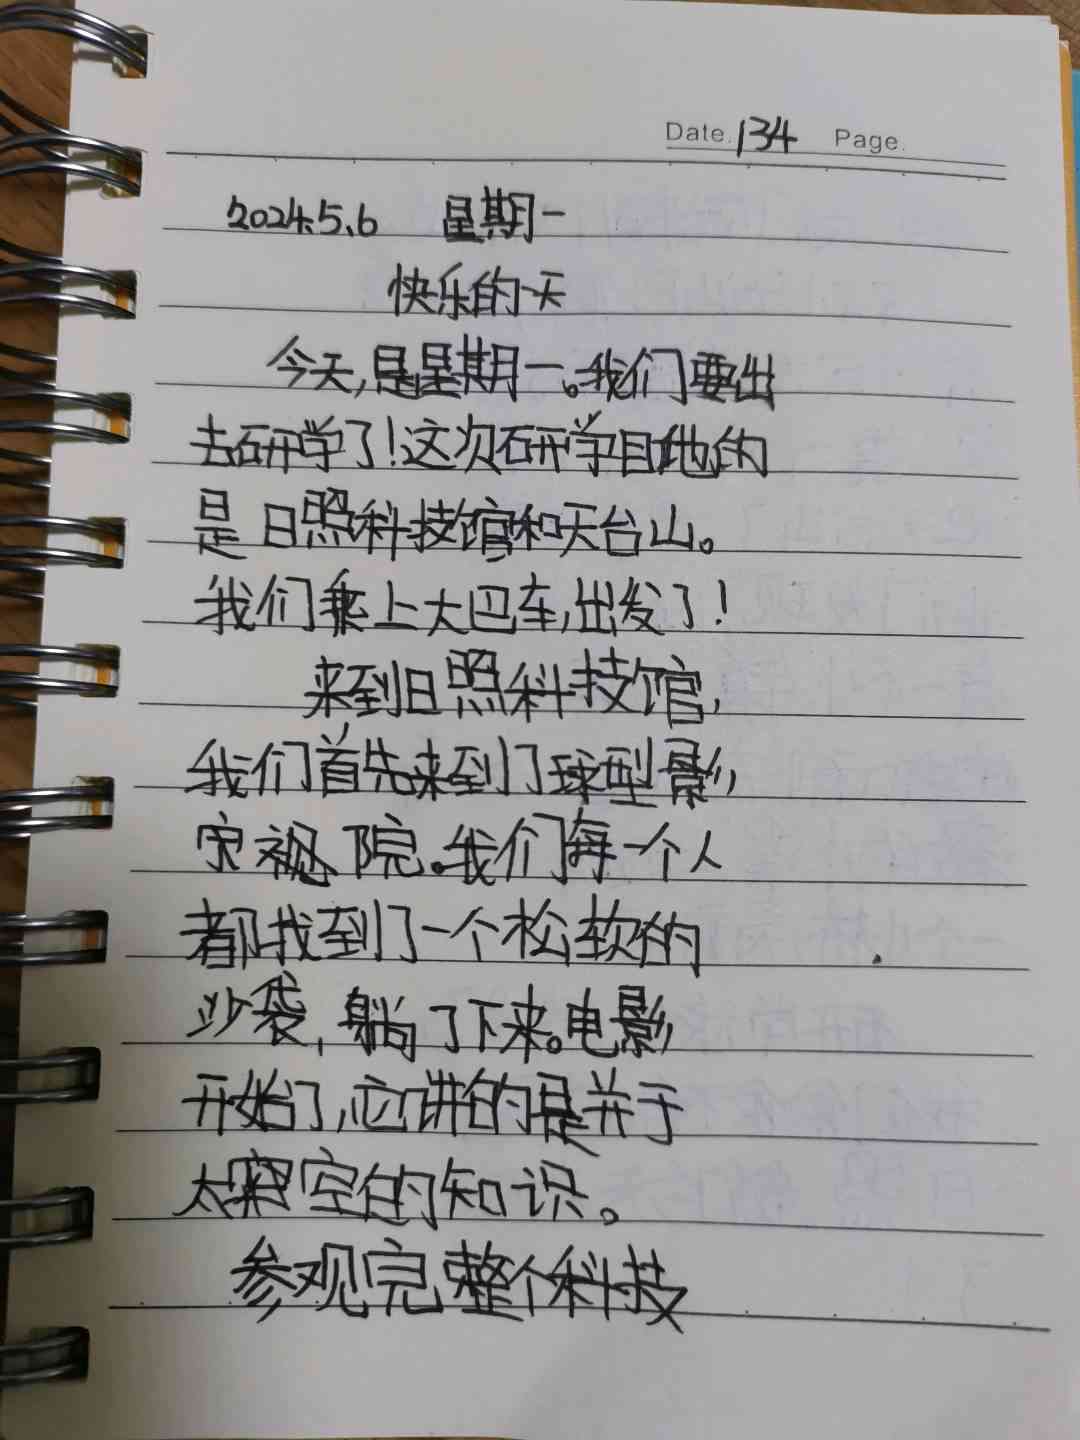 Date. 134 Page.
2024.5.6 星期一
快乐的一天
今天,是星期一。我们要出
去研学了!这次研学目地的
是日照科技馆和天台山。
我们乘上大巴车,出发了!
来到日照科技馆,
我们首先来到了球型影
视院。我们每一个人
都找到了一个松软的
沙袋,躺了下来。电影
开始了,讲的是关于
太空的知识。
参观完整个科技